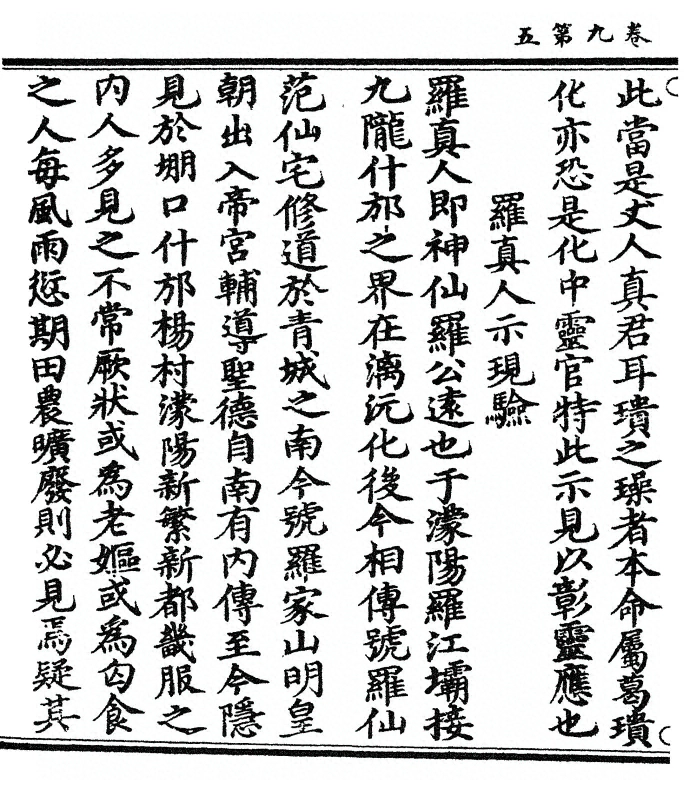 卷九第五
此當是丈人真君耳瓚之璪者本命屬葛瓚
化亦恐是化中靈官特此示見以彰靈應也
羅真人示現驗
羅真人即神仙羅公遠也于濛陽羅江壩接
九隴什邡之界在漓沅化後今相傳號羅仙
范仙宅修道於青城之南今號羅家山明皇
朝出入帝宮輔導聖德自南有内傳至今隱
見於堋口什邡楊村濛陽新繁新都畿服之
内人多見之不常厥狀或為老嫗或為匃食
之人每風雨愆期田農曠廢則必見焉疑其